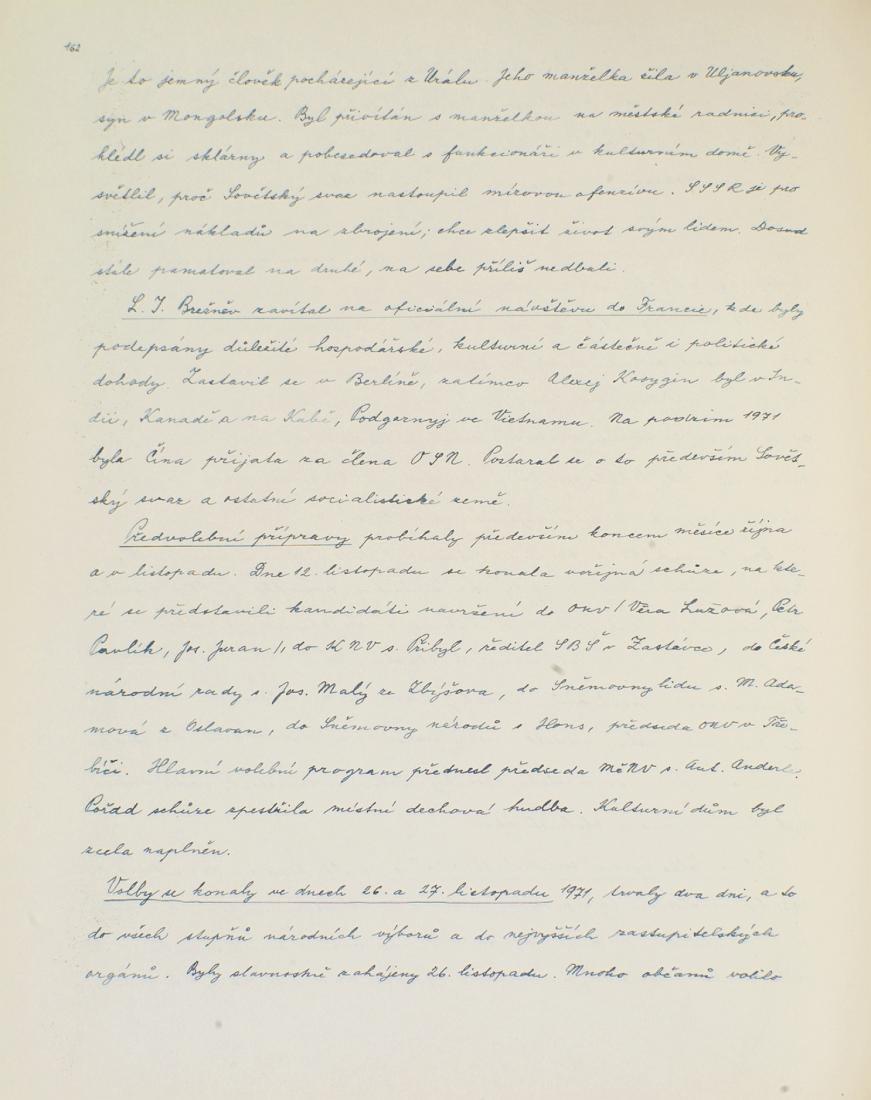 162
Je to jemný člověk pocházející z Urálu. Jeho manželka žila v Uljanovsku,
syn v Mongolsku. Byl přivítán s manželkou na městské radnici, pro-
hlédl si sklárny a pobesedoval s funkcionáři v kulturním domě. Vy-
světlil, proč Sovětský svaz nastoupil mírovou ofenzívu. SSSR je pro
snížení nákladů na zbrojení; chce zlepšit život svým lidem. Dosud
stále pamatoval na druhé, na sebe příliš nedbali.
L. I. Brežněv zavítal na oficiální návštěvu do Francie, kde byly
podepsány důležité hospodářské, kulturní a částečně i politické
dohody. Zastavil se v Berlíně, zatímco Alexej Kosygin byl v In-
dii, Kanadě a na Kubě, Podgornyj ve Vietnamu. Na podzim 1971
byla Čína přijata za člena OSN. Postaral se o to především Sovět-
ský svaz a ostatní socialistické země.
Předvolební přípravy probíhaly především koncem měsíce října
a v listopadu. Dne 12. listopadu se konala veřejná schůze, na kte-
ré se představili kandidáti navržení do ONV / Věra Lužová, Petr
Pavlík, Jos. Juran /, do KNV s. Přibyl, ředitel SBŠ v Zastávce, do České
národní rady s. Jos. Malý ze Zbýšova, do Sněmovny lidu s. M. Ada-
mová z Oslavan, do Sněmovny národů s Hons, předseda ONV v Tře-
bíči. Hlavní volební program přednesl předseda MěNV s. Ant. Anderle.
Pořad schůze zpestřila místní dechová hudba. Kulturní dům byl
zcela naplněn.
Volby se konaly ve dnech 26. a 27. listopadu 1971, trvaly dva dni, a to
do všech stupňů národních výborů a do nejvyšších zastupitelských
orgánů. Byly slavnostně zahájeny 26. listopadu. Mnoho občanů volilo